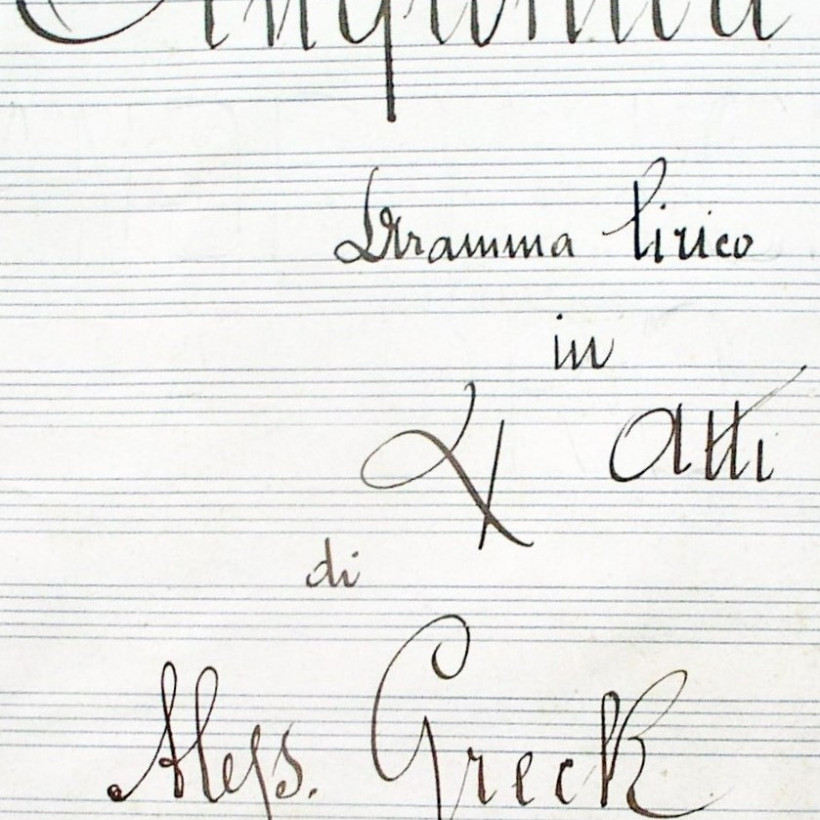 Dramma lirico
in
4 Atti
di
Aless. Greck